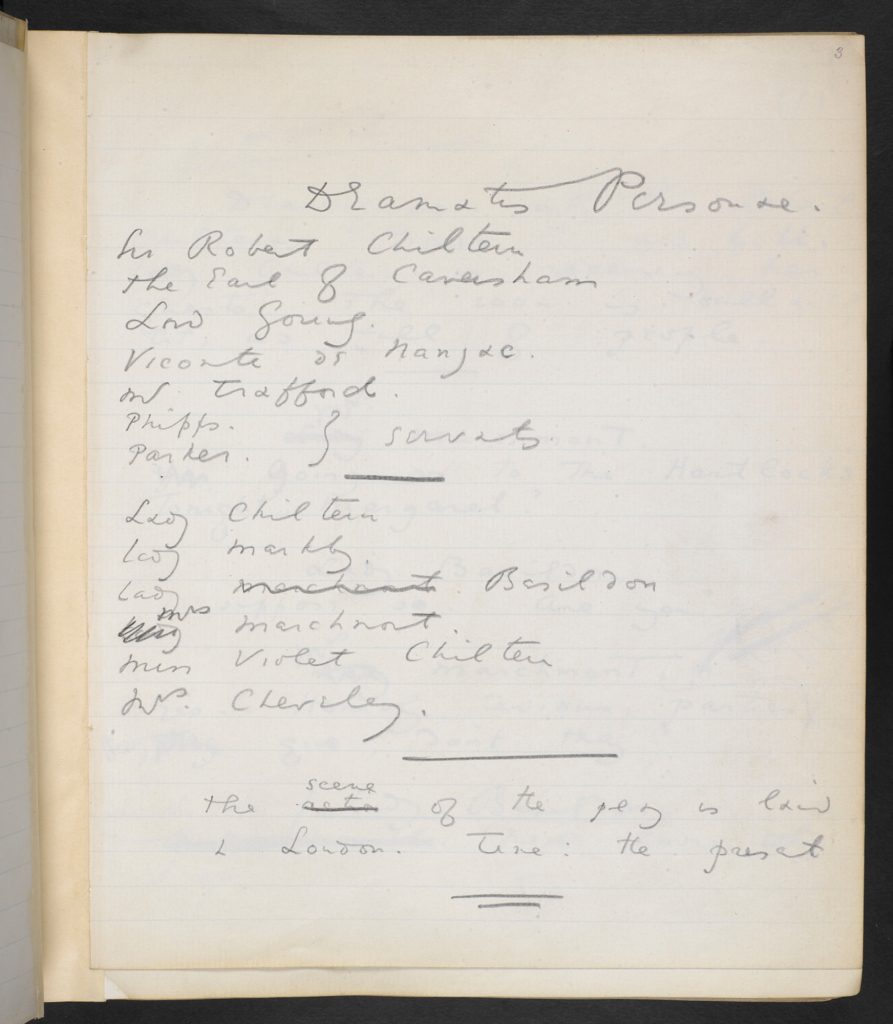 3
Dramatis Personae.
Sir Robert Chiltern
the Earl of Caversham
Lord Goring.
Vicomte de Nanjac.
Mr Trafford.
Phipps. } servants
Parker.
Lady Chiltern
Lady Markby.
Lady Marchmont Basildon
Mrs Marchmont.
Miss Violet Chiltern
Mrs. Cheveley.
scene
the of the play is laid
London. Time: the present